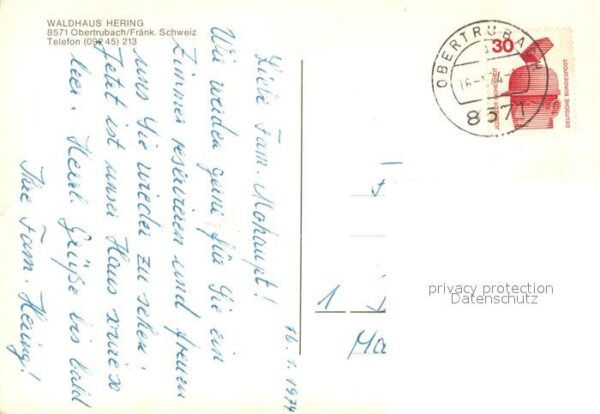 WALDHAUS HERING
8571 Obertrubach/Fränk. Schweiz
Telefon (09245) 213
16. 1. 1974
Liebe Fam. Mohaupt!
Wir werden gerne für Sie ein
Zimmer reservieren und freuen
uns Sie wieder zu sehen.
Jetzt ist unser Haus sowieso
leer. Herzl. Grüße bis bald
Ihre Fam. Hering!
OBERTRUBACH
8571
30
DEUTSCHE BUNDESPOST
1
Ma
privacy protection
Datenschutz